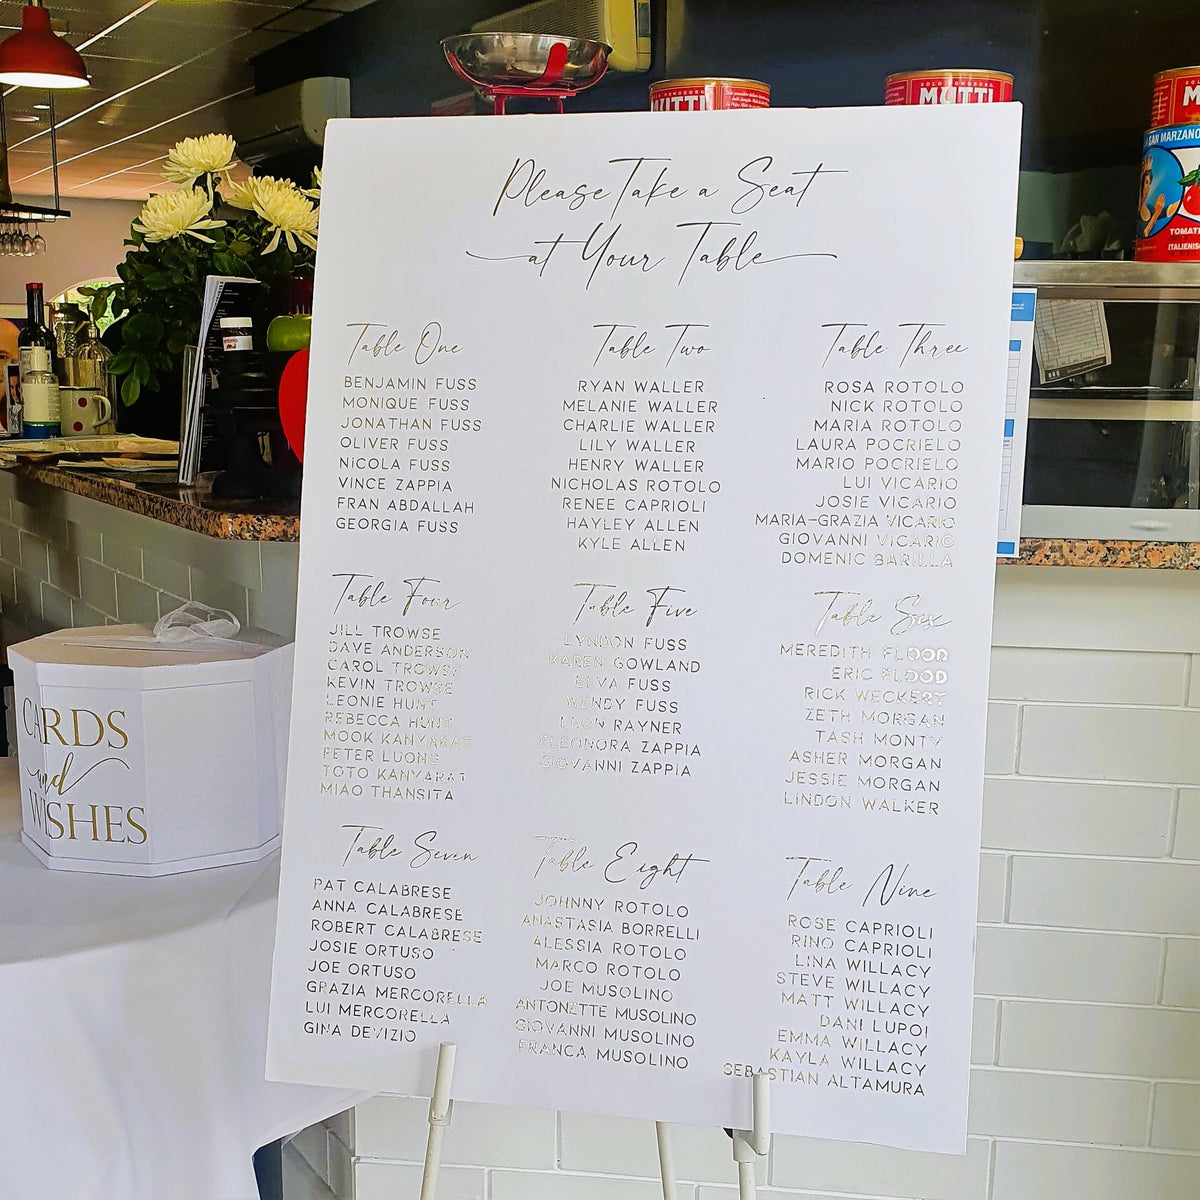 MUTTI
SOLO POMODORO
MUTTI
SAN MARZANO
TOMATI
ITALIENIS
Please Take a Seat
at Your Table
Table One
BENJAMIN FUSS
MONIQUE FUSS
JONATHAN FUSS
OLIVER FUSS
NICOLA FUSS
VINCE ZAPPIA
FRAN ABDALLAH
GEORGIA FUSS
Table Two
RYAN WALLER
MELANIE WALLER
CHARLIE WALLER
LILY WALLER
HENRY WALLER
NICHOLAS ROTOLO
RENEE CAPRIOLI
HAYLEY ALLEN
KYLE ALLEN
Table Three
ROSA ROTOLO
NICK ROTOLO
MARIA ROTOLO
LAURA POCRIELO
MARIO POCRIELO
LUI VICARIO
JOSIE VICARIO
MARIA-GRAZIA VICARIO
GIOVANNI VICARIO
DOMENIC BARILLA
Table Four
JILL TROWSE
DAVE ANDERSON
CAROL TROWSE
KEVIN TROWSE
LEONIE HUNT
REBECCA HUNT
MOOK KANYARAT
PETER LUONG
TOTO KANYARAT
MIAO THANSITA
Table Five
LYNDON FUSS
KAREN GOWLAND
ELVA FUSS
WENDY FUSS
LEON RAYNER
ELEONORA ZAPPIA
GIOVANNI ZAPPIA
Table Six
MEREDITH FLOOD
ERIC FLOOD
RICK WECKERT
ZETH MORGAN
TASH MONTY
ASHER MORGAN
JESSIE MORGAN
LINDON WALKER
Table Seven
PAT CALABRESE
ANNA CALABRESE
ROBERT CALABRESE
JOSIE ORTUSO
JOE ORTUSO
GRAZIA MERCORELLA
LUI MERCORELLA
GINA DEVIZIO
Table Eight
JOHNNY ROTOLO
ANASTASIA BORRELLI
ALESSIA ROTOLO
MARCO ROTOLO
JOE MUSOLINO
ANTONETTE MUSOLINO
GIOVANNI MUSOLINO
FRANCA MUSOLINO
Table Nine
ROSE CAPRIOLI
RINO CAPRIOLI
LINA WILLACY
STEVE WILLACY
MATT WILLACY
DANI LUPOI
EMMA WILLACY
KAYLA WILLACY
SEBASTIAN ALTAMURA
CARDS
and
WISHES